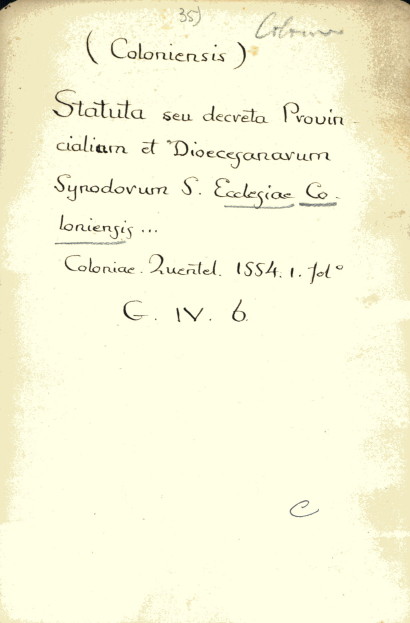 35)
(Coloniensis)
Statuta seu decreta Provin-
cialium et Dioecesanarum
Synodorum S. Ecclesiae Co-
loniensis...
Coloniae. Quentel. 1554. 1. fol°
G. IV. 6
C